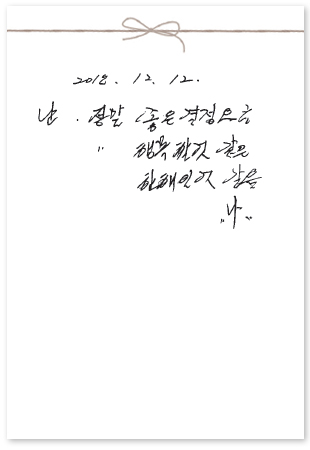 2018. 12. 12.
난. 정말 좋은 결정으로
" 행복할것 같은
한해인것 같음
"나"